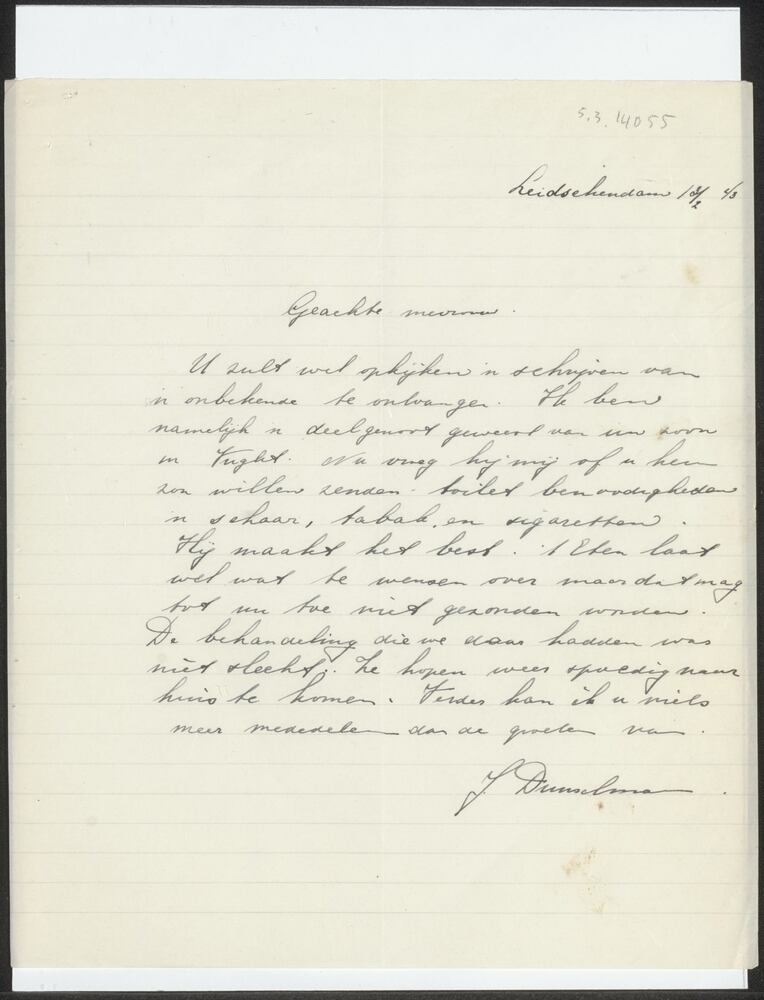 5.3. 14055
Leidschendam 13/2 4/3
Geachte mevrouw.
U zult wel opkijken 'n schrijven van
'n onbekende te ontvangen. Ik ben
namelijk 'n deelgenoot geweest van uw zoon
in Vught. Nu vroeg hij mij of u hem
zou willen zenden. toilet benoodigheden
'n schaar, tabak, en sigaretten.
Hij maakt het best. 't Eten laat
wel wat te wensen over maar dat mag
tot nu toe niet gezonden worden.
De behandeling die we daar hadden was
niet slecht. Ze hopen weer spoedig naar
huis te komen. Verder kan ik u niets
meer mededelen dan de groeten van.
J. Duuselman